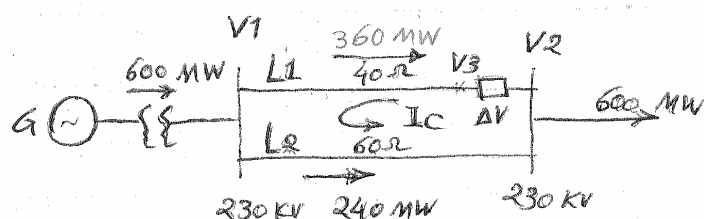 V1
360 MW
V2
600 MW
L1
40Ω
V3
600 MW
G
~
IC
ΔV
L2
60Ω
230 KV
240 MW
230 KV